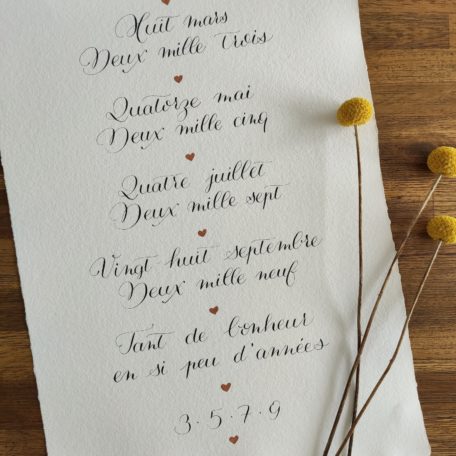 Huit mars
Deux mille trois
Quatorze mai
Deux mille cinq
Quatre juillet
Deux mille sept
Vingt huit septembre
Deux mille neuf
Tant de bonheur
en si peu d'années
3.5.7.9